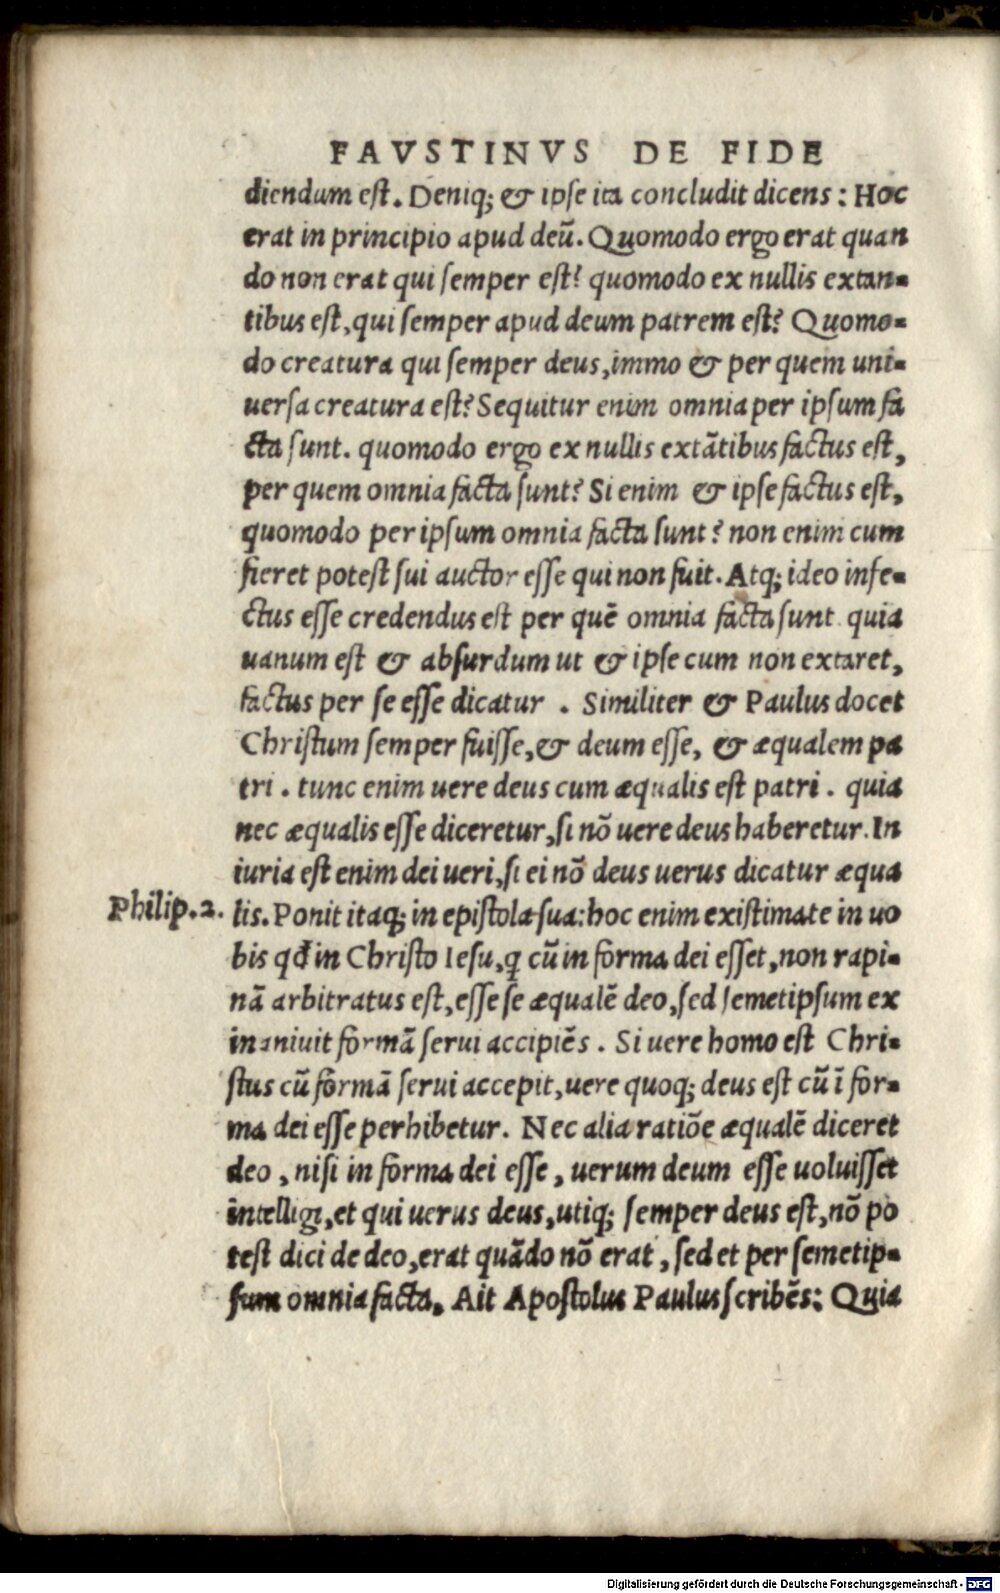 FAVSTINVS DE FIDE
diendum est. Deniq; & ipse ita concludit dicens: Hoc
erat in principio apud deū. Quomodo ergo erat quan
do non erat qui semper est? quomodo ex nullis extan-
tibus est, qui semper apud deum patrem est? Quomo-
do creatura qui semper deus, immo & per quem uni-
uersa creatura est? Sequitur enim omnia per ipsum fa
cta sunt. quomodo ergo ex nullis extātibus factus est,
per quem omnia facta sunt? Si enim & ipse factus est,
quomodo per ipsum omnia facta sunt? non enim cum
fieret potest sui auctor esse qui non fuit. Atq; ideo infe-
ctus esse credendus est per quē omnia facta sunt quia
uanum est & absurdum ut & ipse cum non extaret,
factus per se esse dicatur. Similiter & Paulus docet
Christum semper fuisse, & deum esse, & æqualem pa
tri. tunc enim uere deus cum æqualis est patri. quia
nec æqualis esse diceretur, si nō uere deus haberetur. In
iuria est enim dei ueri, si ei nō deus uerus dicatur æqua
Philip.2. lis. Ponit itaq; in epistola sua: hoc enim existimate in uo
bis qđ in Christo Iesu, q cū in forma dei esset, non rapi-
nā arbitratus est, esse se æqualē deo, sed semetipsum ex
inaniuit formā serui accipiēs. Si uere homo est Chri-
stus cū formā serui accepit, uere quoq; deus est cū ī for-
ma dei esse perhibetur. Nec alia ratiōe æqualē diceret
deo, nisi in forma dei esse, uerum deum esse uoluisset
intelligi, et qui uerus deus, utiq; semper deus est, nō po
test dici de deo, erat quādo nō erat, sed et per semetip-
sum omnia facta. Ait Apostolus Paulus scribēs: Quia
Digitalisierung gefördert durch die Deutsche Forschungsgemeinschaft - DFG